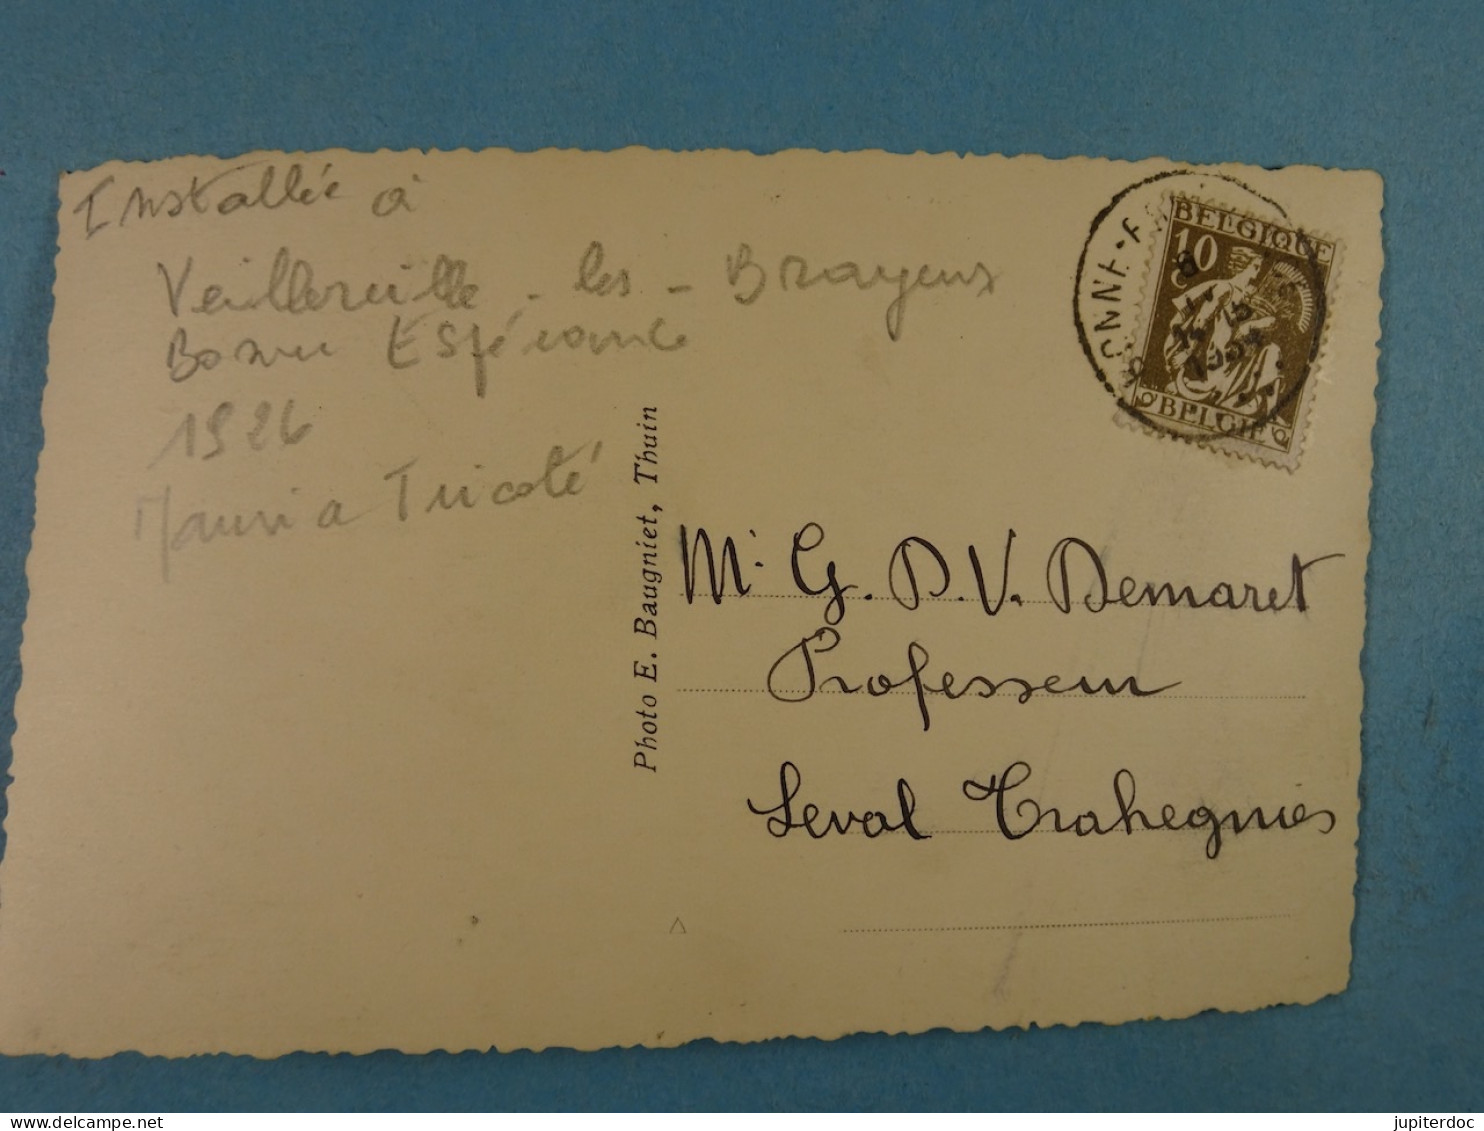 Installée à
Veillereille - les - Brayeux
Bonne Espérance
1926
Maria Tricoté
Photo E. Baugniet, Thuin
BELGIQUE
10
c
BELGIE
8
1934
Mr G. D. V. Demaret
Professeur
Leval Trahegnies
jupiterdoc